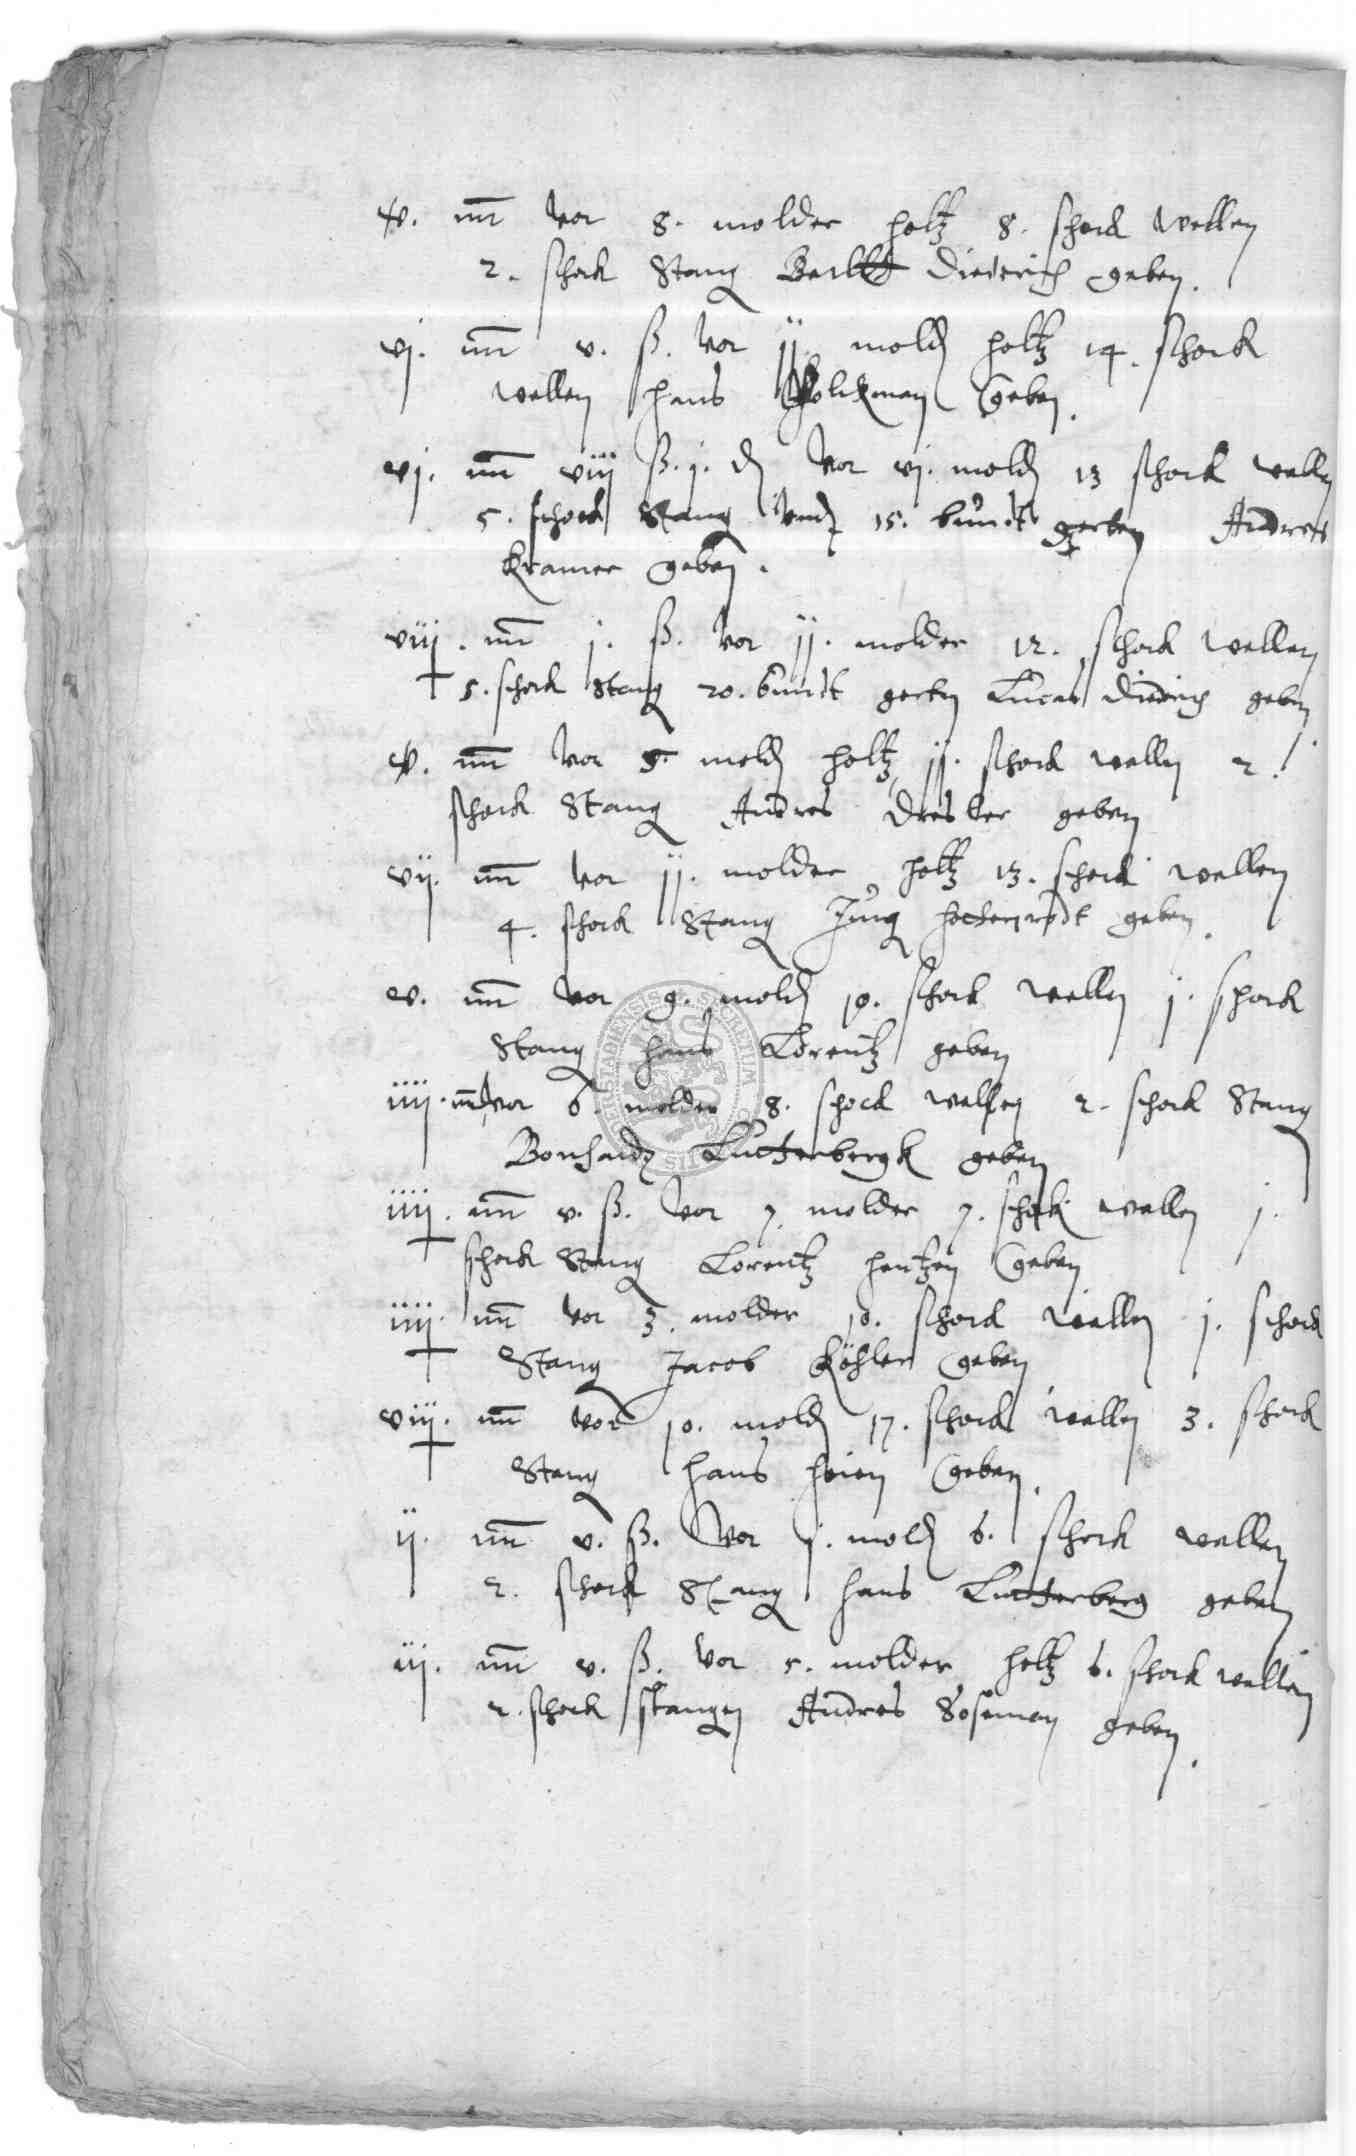 v. mr vor 8. molder holtz 8. schock wellen
2. schock Stang Diderich geben.
vj. mr v. ß. vor ij molder holtz 14. schock
wellen hans Volckman geben.
vj. mr viij ß. j. d vor vj. mold 13 schock welln
5. schock Stang vnd 15. bundt gerten Andres
Kramer geben.
viij. mr j. ß. vor jj. molder 12. schock wellen
5. schock Stang 20. bundt gertn Lucas Didrich geben
v. mr vor 5. mold holtz jj. schock wellen 2.
schock Stang Andres Dresler geben
vij. mr vor jj. molder holtz 13. schock wellen
4. schock Stang Jung geben.
v. mr vor 9. mold 10. schock wellen j. schock
Stang hans Lorentz geben
iiij. mr vor 6. molder 8. schock wellen 2. schock Stang
Lutterbergk geben
iiij. mr v. ß. vor 7. molder 7. schock wellen j.
schock Stang Lorentz hentzen geben
iiij. mr vor 3. molder 10. schock wellen j. schock
Stang Jacob Köhler geben
viij. mr vor 10. mold 17. schock wellen 3. schock
Stang hans heien geben.
ij. mr v. ß. vor j. mold 6. schock wellen
2. schock Stang hans Lutterberg geben
iij. mr v. ß. vor 5. molder holtz 6. schock wellen
2. schock stangen Andres Söseman geben.